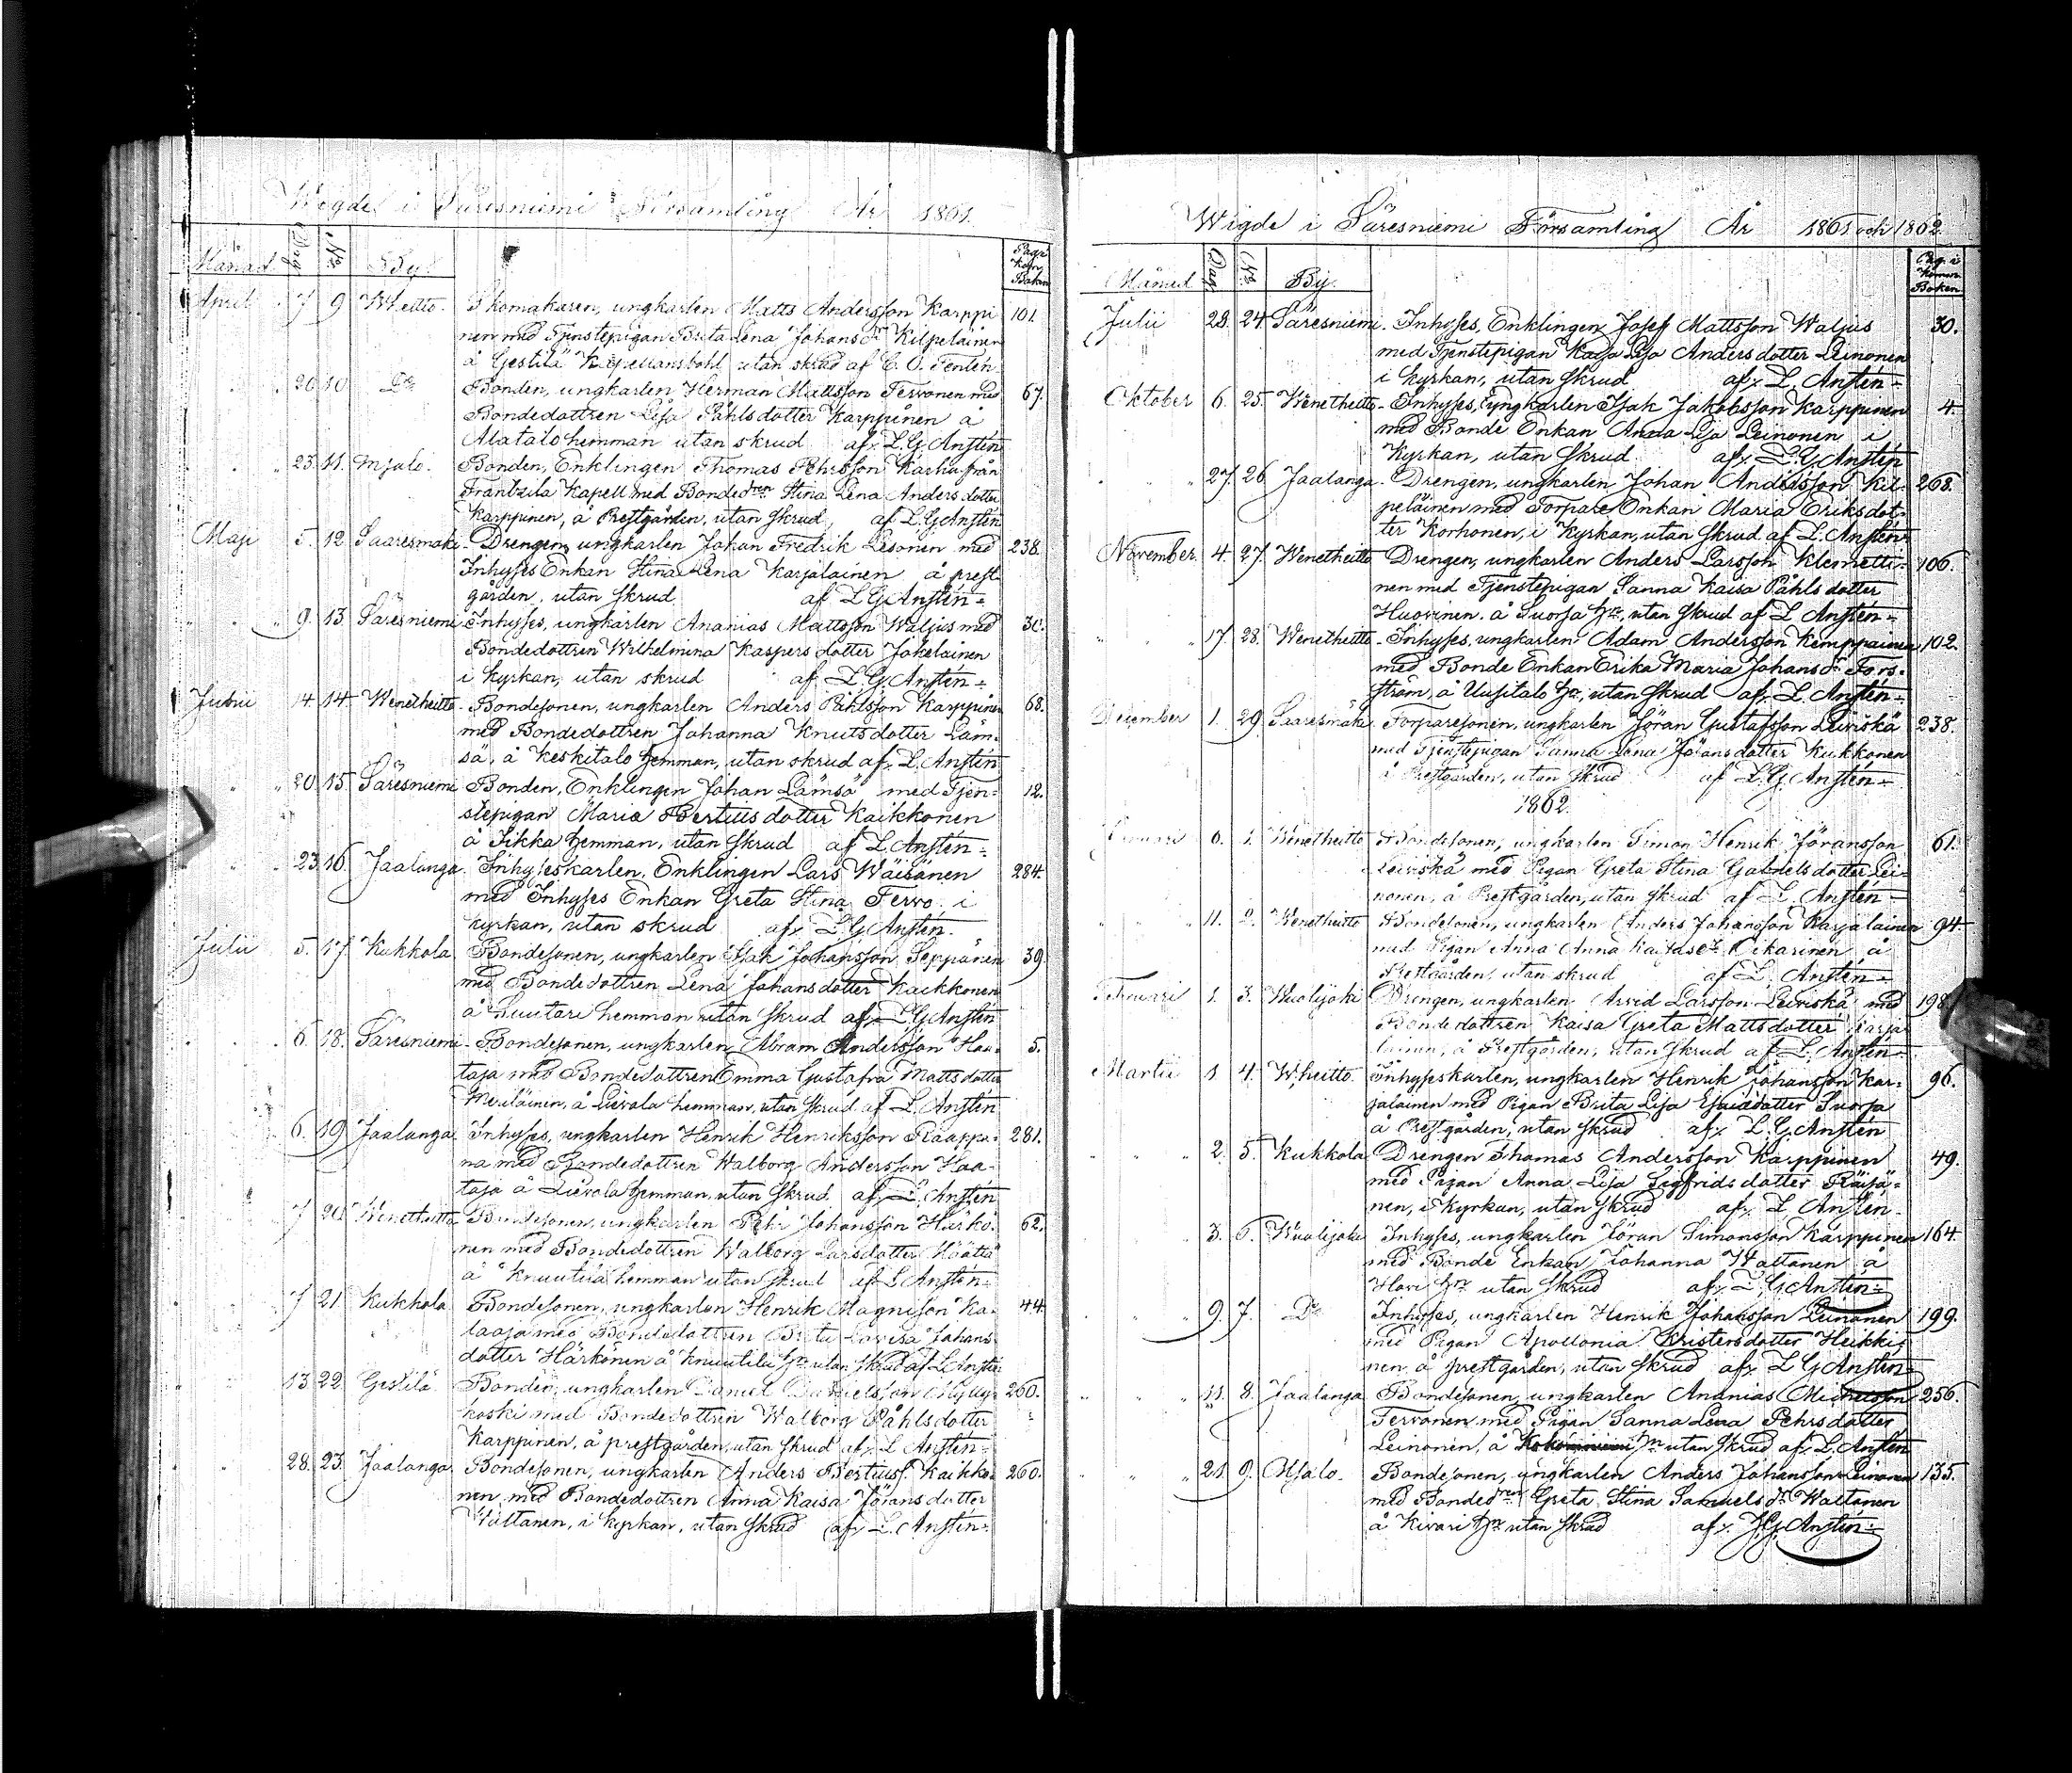 Wigde i Säresniemi Församling År 1861.
Månad Dag No By Pag. i Kom. Boken
April 7 9 W:heitto. Skomakaren, ungkarlen Matts Andersson Karppi 101.
nen med Tjenstepigan Brita Lena Johansdr Kilpeläinen
å Gestilä Kapellansbohl utan skrud af C. O. Tentén
" 20 10 Do Bonden, ungkarlen Herman Mattsson Tervonen med 67.
Bondedottren Lisa Påhlsdotter Karppinen å
Alatalo hemman utan skrud af L. G. Anstén
" 23. 11. Mjalo. Bonden, Enklingen Thomas Pehrsson Karhu från
Frantzila Kapell med Bondedren Stina Lena Andersdotter
Karppinen, å Prestgården, utan skrud, af L. G. Anstén
Maji 5. 12 Saaresmäki Drengen, ungkarlen Johan Fredrik Lesonen med 238.
Inhyses Enkan Stina Lena Karjalainen å prest
gården, utan skrud af L. G. Anstén=
" 9. 13. Säresniemi Inhyses, ungkarlen Ananias Mattsson Waljus med 30.
Bondedottren Wilhelmina Kaspersdotter Jakelainen
i kyrkan, utan skrud af L. G. Anstén=
Junii 14. 14. Wenetheitto Bondesonen, ungkarlen Anders Påhlsson Karppinen 68.
med Bondedottren Johanna Knutsdotter Läm=
sä, å Keskitalo hemman, utan skrud af L. Anstén
" 20. 15. Säresniemi Bonden, Enklingen Johan Lämsä med Tjen= 12.
stepigan Maria Bertilsdotter Kaikkonen
å Sikka hemman, utan skrud af L. Anstén=
" 23. 16. Jaalanga. Inhyseskarlen, Enklingen Lars Wäisänen 284.
med Inhyses Enkan Greta Stina Tervo i
kyrkan, utan skrud af L. G. Anstén.
Julii 5. 17. Kukkola Bondesonen, ungkarlen Isak Johansson Seppänen 39
med Bondedottren Lena Johansdotter Kaikkonen
å Luutari hemman utan skrud af L. G. Anstén
" 6 18. Säresniemi Bondesonen, ungkarlen Abram Andersson Haa= 5.
taja med Bondedottren Emma Gustafva Mattsdotter
Meriläinen, å Lievola hemman, utan skrud af L. Anstén
6. 19. Jaalanga Inhyses, ungkarlen Henrik Henriksson Raappa= 281.
na med Bondedottren Walborg Andersson Haa=
taja å Lievola hemman, utan skrud af L. Anstén
7 20. Wenetheitto Bondesonen, ungkarlen Pehr Johansson Härkö= 62.
nen med Bondedottren Walborg Larsdotter Määttä
å Knuutila hemman utan skrud af L. Anstén=
7 21. Kukkola Bondesonen, ungkarlen Henrik Magnisson Ka= 44
laaja med Bondedottren Brita Lovisa Johans
dotter Härkönen å Knuutila hn utan skrud af L. Anstén
13. 22. Gestilä Bonden, ungkarlen Daniel Danielsson Mylly= 260.
koski med Bondedottren Walborg Påhlsdotter
Karppinen, å prestgården, utan skrud af L. Anstén=
28. 23. Jaalanga Bondesonen, ungkarlen Anders Bertilss. Kaikko= 260.
nen, med Bondedottren Anna Kaisa Jöransdotter
Wattanen, i kyrkan, utan skrud af L. Anstén=
Wigde i Säresniemi Församling År 1861 och 1862
Månad Dag No By. Pag. i Komm. Boken
Julii 28. 24. Säresniemi. Inhyses, Enklingen Josef Mattsson Waljus 30.
med Tjenstepigan Kaisa Lisa Andersdotter Leinonen
i kyrkan, utan skrud af L. Anstén=
Oktober 6. 25. Wenetheitto. Inhyses, ungkarlen Isak Jakobsson Karppinen 4.
med Bonde Enkan Anna Lisa Leinonen i
Kyrkan, utan skrud af L. G. Anstén
" 27. 26. Jaalanga. Drengen, ungkarlen Johan Andersson Kil= 268.
peläinen med Torpare Enkan Maria Eriksdot=
ter Korhonen, i Kyrkan, utan skrud af L. Anstén=
November 4. 27. Wenetheitto Drengen, ungkarlen Anders Larsson Klemetti= 106.
nen med Tjenstepigan Sanna Kaisa Påhlsdotter
Huovinen å Suorsa hn, utan skrud af L. Anstén=
" 17. 28. Wenetheitto. Inhyses, ungkarlen Adam Andersson Kemppainen 102.
med Bonde Enkan Erika Maria Johansdr Fors=
ström, å Uusitalo hn, utan skrud af L. Anstén=
December 1. 29. Saaresmäki Torparesonen, ungkarlen Jöran Gustafsson Leiviskä 238.
med Tjenstepigan Sanna Lena Jöransdotter Kukkonen
å Prestgården, utan skrud af L. G. Anstén=
1862.
Januari 6. 1. Wenetheitto Bondesonen, ungkarlen Simon Henrik Jöransson 61.
Leiviskä med Pigan Greta Stina Gabrielsdotter Lei=
nonen, å Prestgården, utan skrud af L. Anstén=
" 11. 2. Wenetheitto Bondesonen, ungkarlen Anders Johansson Karjalainen 94.
med Pigan Anna Pikarinen å
Prestgården, utan skrud af L. Anstén=
Februari 1. 3. Wuolijoki Drengen, ungkarlen Arvid Larsson Leiviskä med 198.
Bondedottren Kaisa Greta Mattsdotter Karja
lainen, å Prestgården, utan skrud af L. Anstén=
Martii 1 4. W:heitto. Inhyseskarlen, ungkarlen Henrik Johansson Kar= 96.
jalainen med Pigan Brita Lisa Esaiadotter Suorsa
å Prestgården, utan skrud af L. G. Anstén
" 2. 5. Kukkola Drengen Thomas Andersson Karppinen 49.
med Pigan Anna Lisa Sigfridsdotter Räisä=
nen, i Kyrkan, utan skrud af L. Anstén.
" 3. 6. Wuolijoki Inhyses, ungkarlen Jöran Simonsson Karppinen 164.
med Bonde Enkan Johanna Wattanen å
Havi hn utan skrud af L. G. Anstén=
" 9. 7. Do Inhyses, ungkarlen Henrik Johansson Leinonen 199.
med Pigan Apollonia Kristersdotter Heikki=
nen å prestgården, utan skrud af L. G. Anstén=
" 11. 8. Jaalanga Bondesonen, ungkarlen Ananias Michelsson 256.
Tervonen med Pigan Sanna Lena Pehrsdotter
Leinonen, å hn utan skrud af L. Anstén
" 21. 9. Mjalo. Bondesonen, ungkarlen Anders Johansson Leinonen 135.
med Bondedren Greta Stina Samuelsdr Wattanen
å Kivari hn utan skrud af L. G. Anstén=